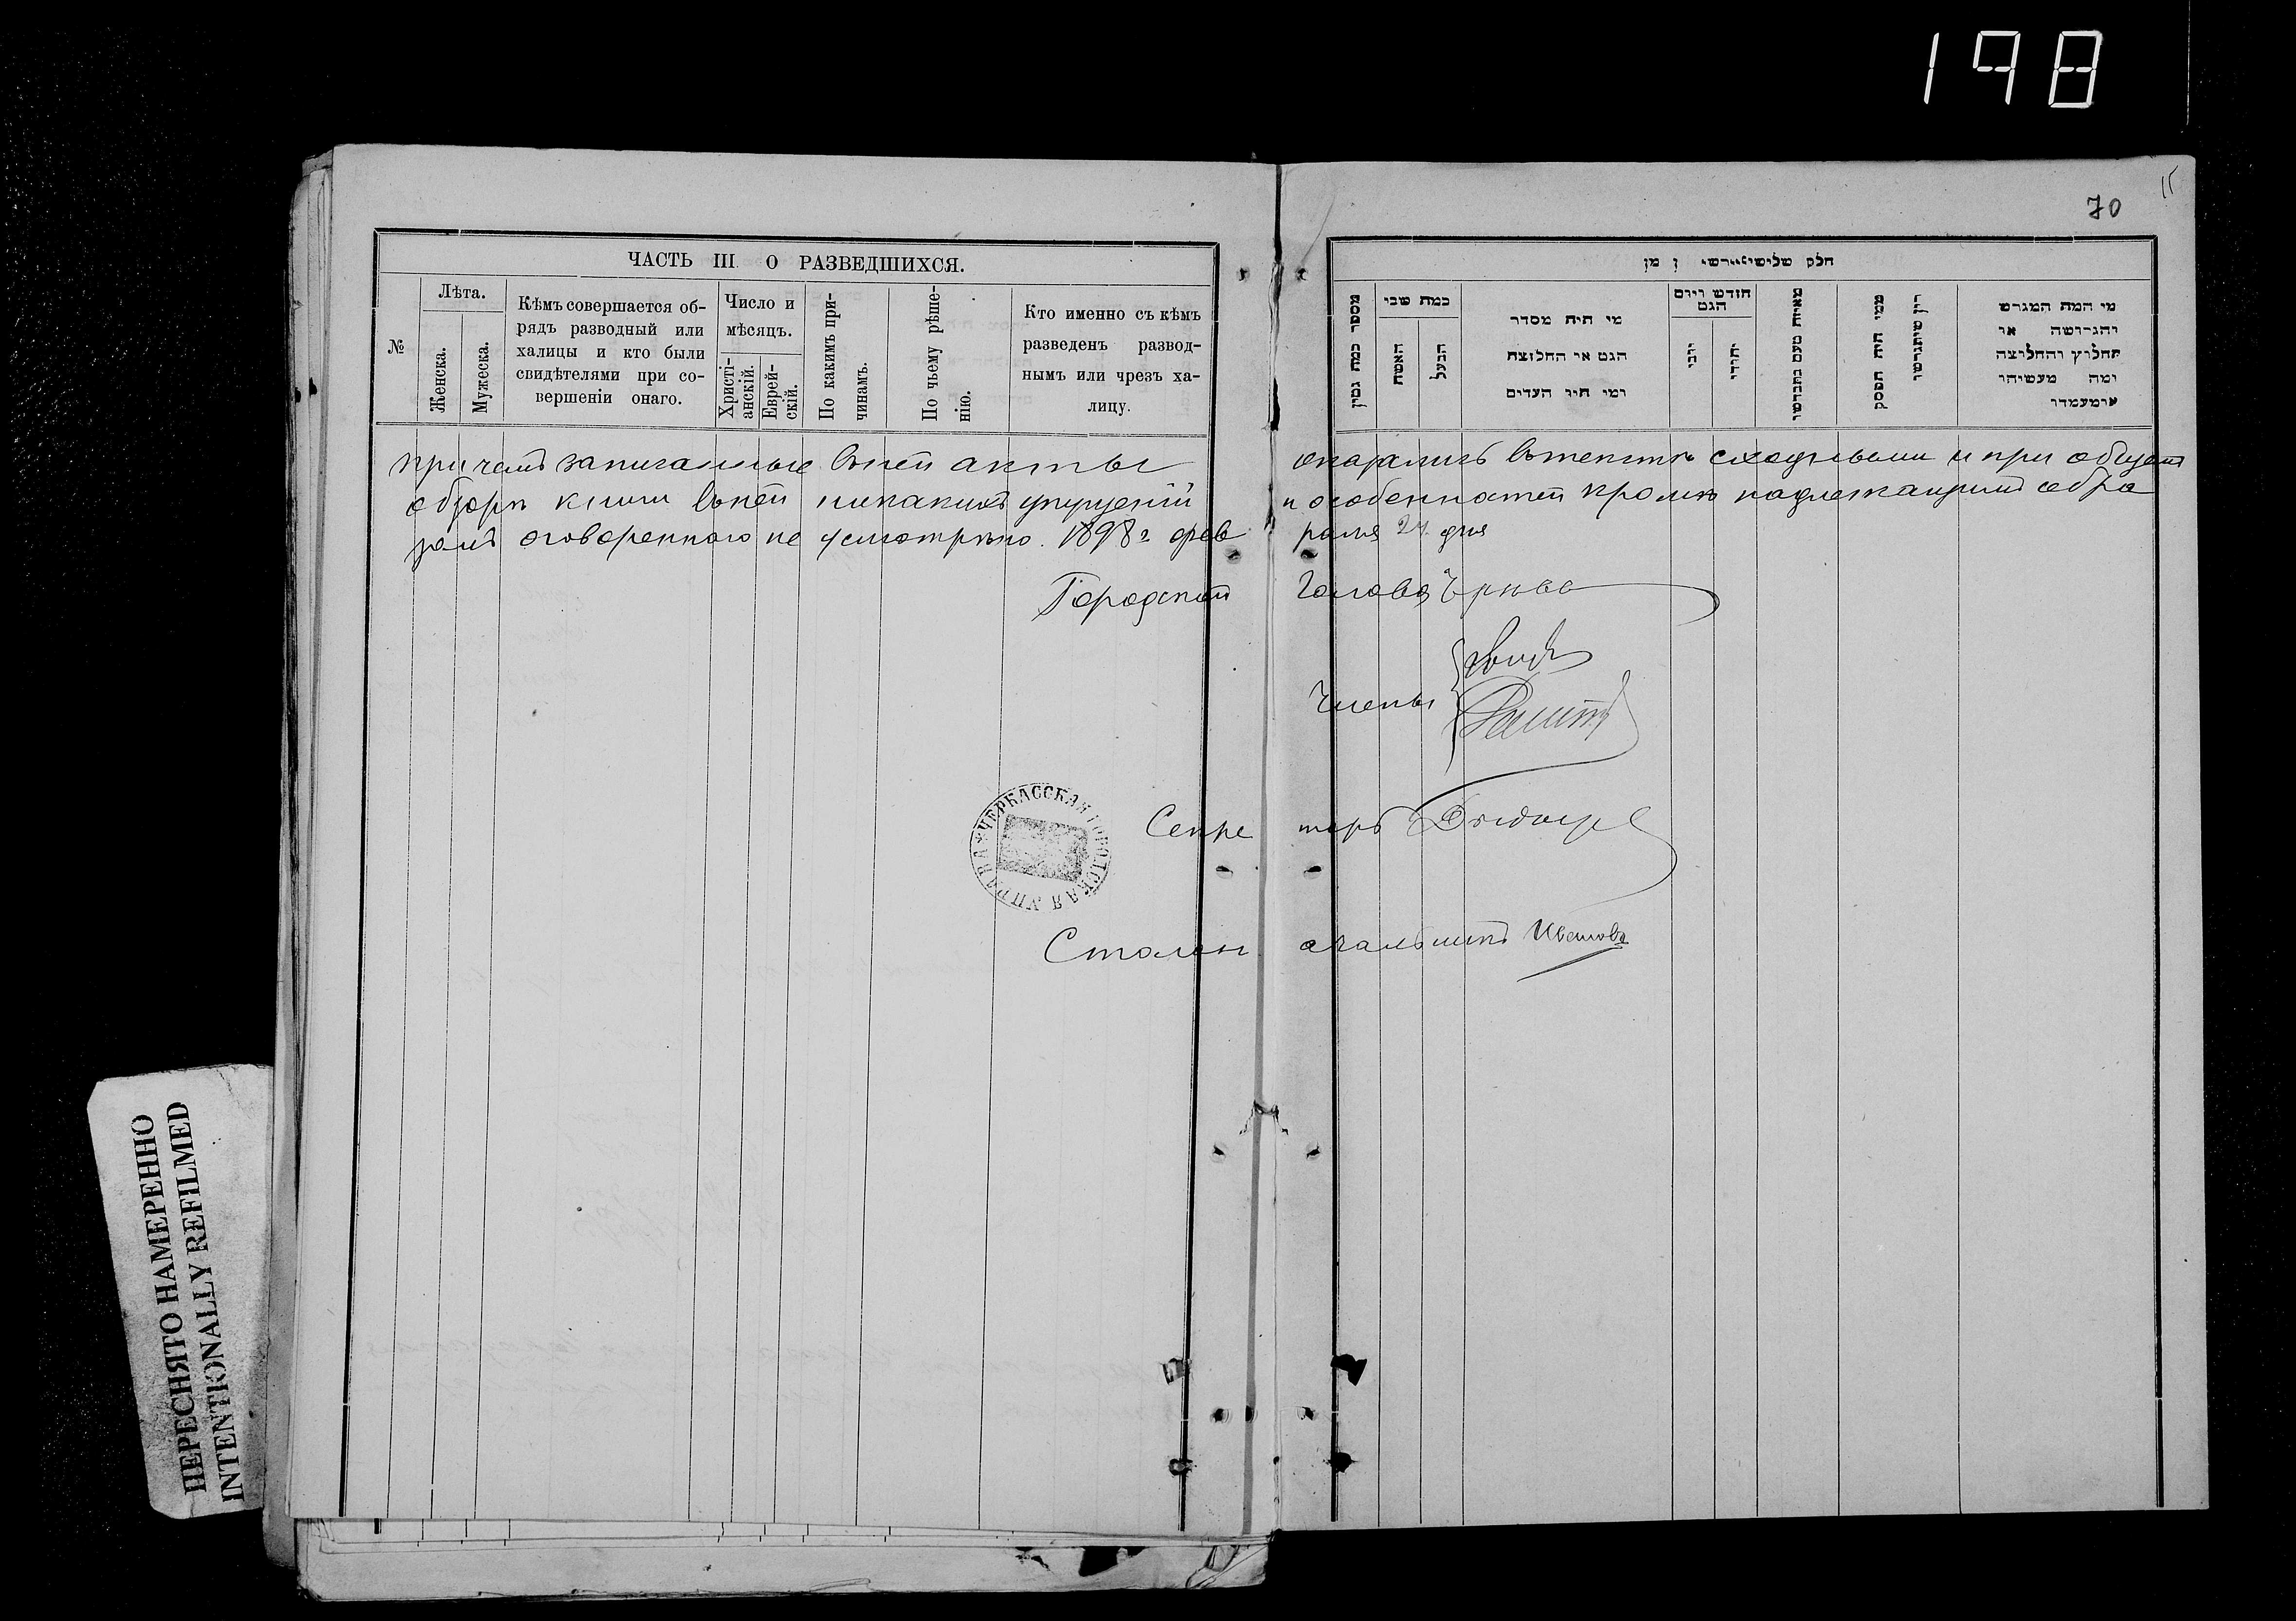 198
70
ЧАСТЬ III О РАЗВЕДШИХСЯ.
№
Лѣта.
Женска.
Мужеска.
Кѣмъ совершается об-
рядъ разводный или
халицы и кто были
свидѣтелями при со-
вершеніи онаго.
Число и
мѣсяцъ.
Христі-
анскій.
Еврей-
скій.
По какимъ при-
чинамъ.
По чьему рѣше-
нію.
Кто именно съ кѣмъ
разведенъ развод-
нымъ или чрезъ ха-
лицу.
חלק שלישי
מספר כמה גטין
כמה שני
האשה
הבעל
מי היה מסדר
הגט או החלוצה
ומי היו העדים
חודש ויום
הגט
יוני
יהודי
ממי היה הפסק
דין שיתגרשו
מי המה המגרש
והגרושה או
החלוץ והחלוצה
ומה מעשיהו
ומעמדו
причемъ записанные въ ней акты оказались въ текстѣ сходными и при общемъ
обзорѣ книги въ ней никакихъ упущеній и особенностей кромѣ надлежащимъ обра
зомъ оговореннаго не усмотрѣно. 1898 г. фев раля 24 дня
Городской Голова
Члены
Секре таръ
Столон ачальникъ Ивановъ
ЧЕРКАССКАЯ ГОРОДСКАЯ УПРАВА
ПЕРЕСНЯТО НАМЕРЕННО
INTENTIONALLY REFILMED